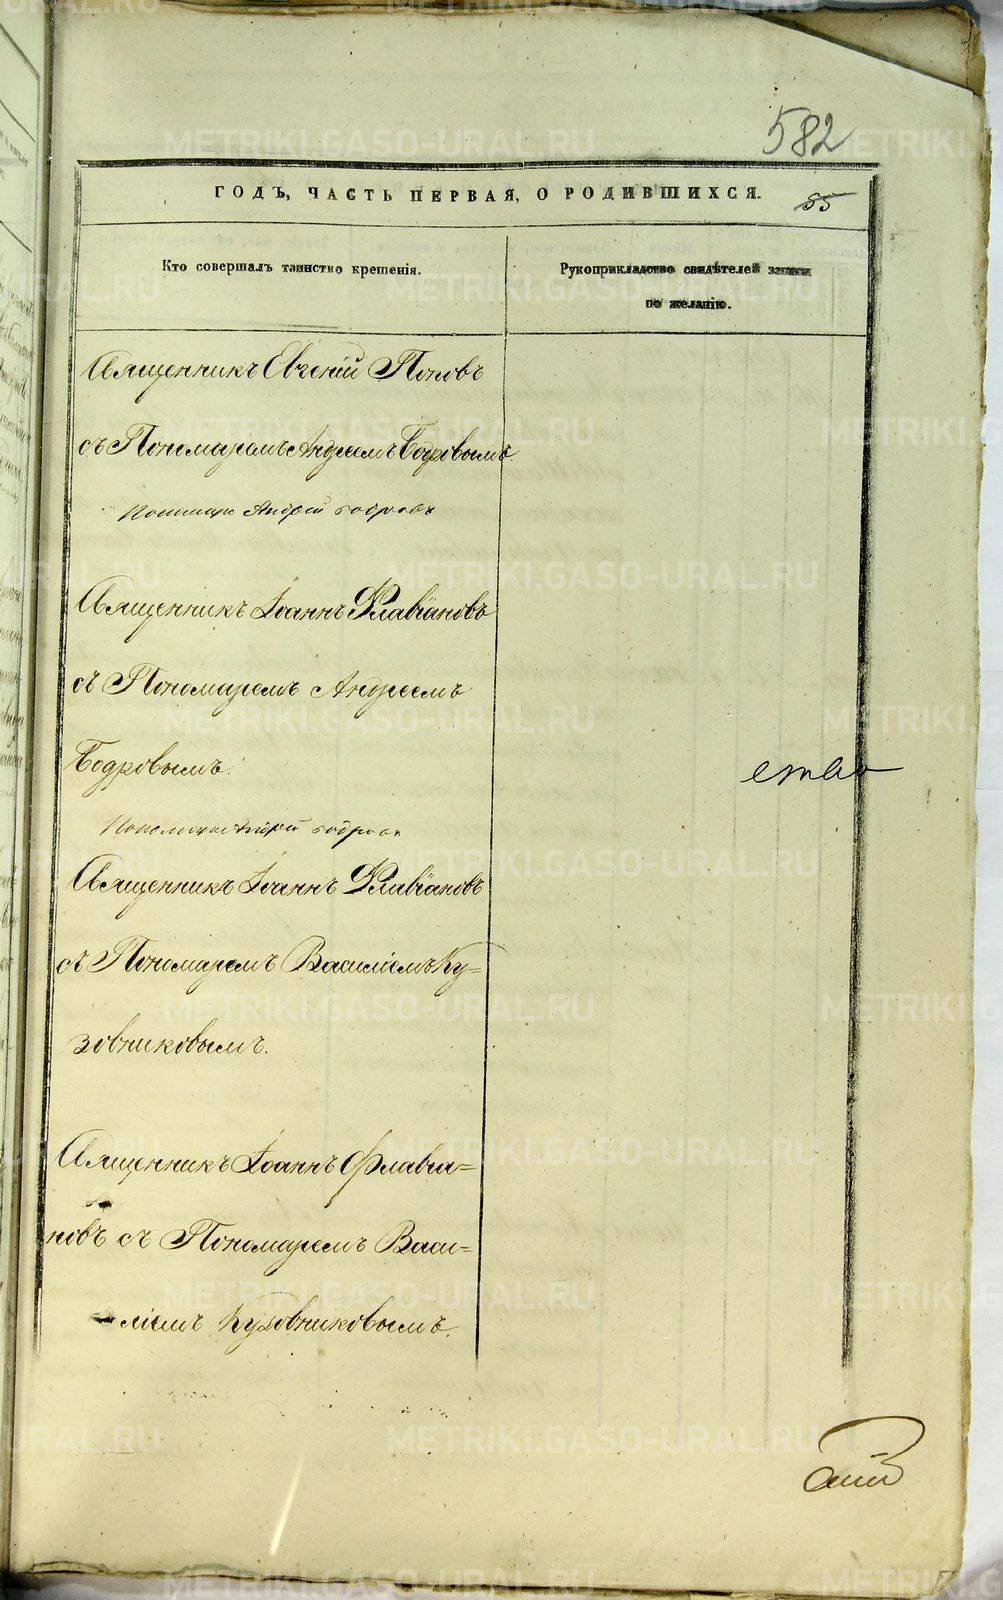 582
ГОДЪ, ЧАСТЬ ПЕРВАЯ, О РОДИВШИХСЯ.
55
Кто совершалъ таинство крещенія.
Рукоприкладство свидѣтелей записи
по желанію.
Священникъ Евгеній Поповъ
съ Пономаремъ Андреемъ Бодровымъ.
Пономарь Андрей Бодровъ
Священникъ Іоаннъ Флавіановъ
съ Пономаремъ Андреемъ
Бодровымъ.
Пономарь Андрей Бодровъ
Священникъ Іоаннъ Флавіановъ
съ Пономаремъ Василіемъ Ку=
зовниковымъ.
Священникъ Іоаннъ Флавіа=
новъ съ Пономаремъ Васи=
ліемъ Кузовниковымъ.
METRIKI.GASO-URAL.RU